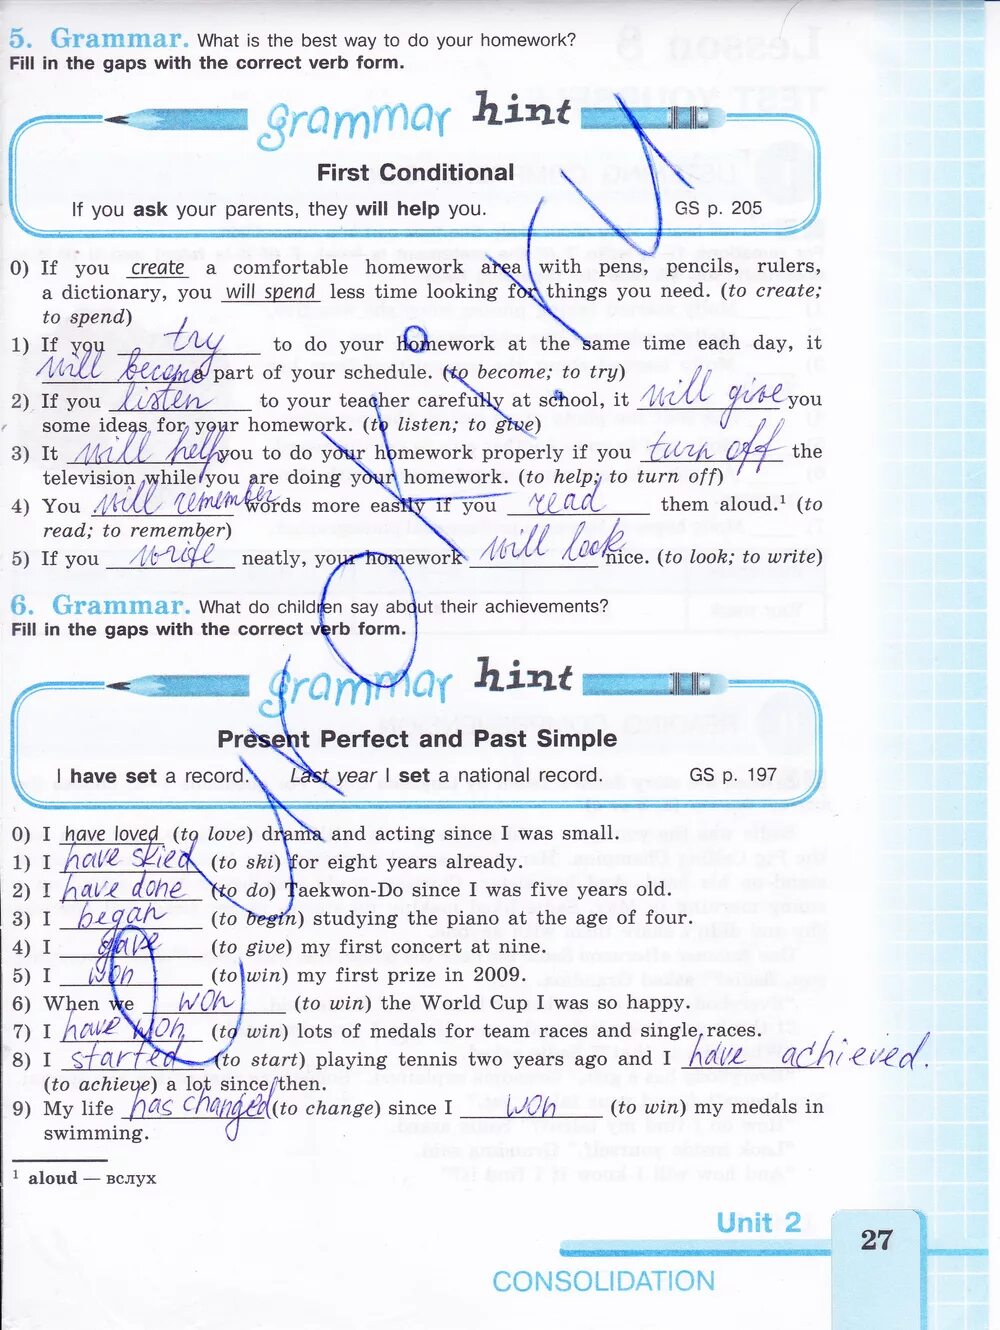 5. Grammar. What is the best way to do your homework?
Fill in the gaps with the correct verb form.
grammar hint
First Conditional
If you ask your parents, they will help you. GS p. 205
0) If you create a comfortable homework area with pens, pencils, rulers,
a dictionary, you will spend less time looking for things you need. (to create;
to spend)
1) If you try to do your homework at the same time each day, it
will become a part of your schedule. (to become; to try)
2) If you listen to your teacher carefully at school, it will give you
some ideas for your homework. (to listen; to give)
3) It will help you to do your homework properly if you turn off the
television while you are doing your homework. (to help; to turn off)
4) You will remember words more easily if you read them aloud.¹ (to
read; to remember)
5) If you write neatly, your homework will look nice. (to look; to write)
6. Grammar. What do children say about their achievements?
Fill in the gaps with the correct verb form.
grammar hint
Present Perfect and Past Simple
I have set a record. Last year I set a national record. GS p. 197
0) I have loved (to love) drama and acting since I was small.
1) I have skied (to ski) for eight years already.
2) I have done (to do) Taekwon-Do since I was five years old.
3) I began (to begin) studying the piano at the age of four.
4) I gave (to give) my first concert at nine.
5) I won (to win) my first prize in 2009.
6) When we won (to win) the World Cup I was so happy.
7) I have won (to win) lots of medals for team races and single races.
8) I started (to start) playing tennis two years ago and I have achieved.
(to achieve) a lot since then.
9) My life has changed (to change) since I won (to win) my medals in
swimming.
¹ aloud — вслух
Unit 2
27
CONSOLIDATION